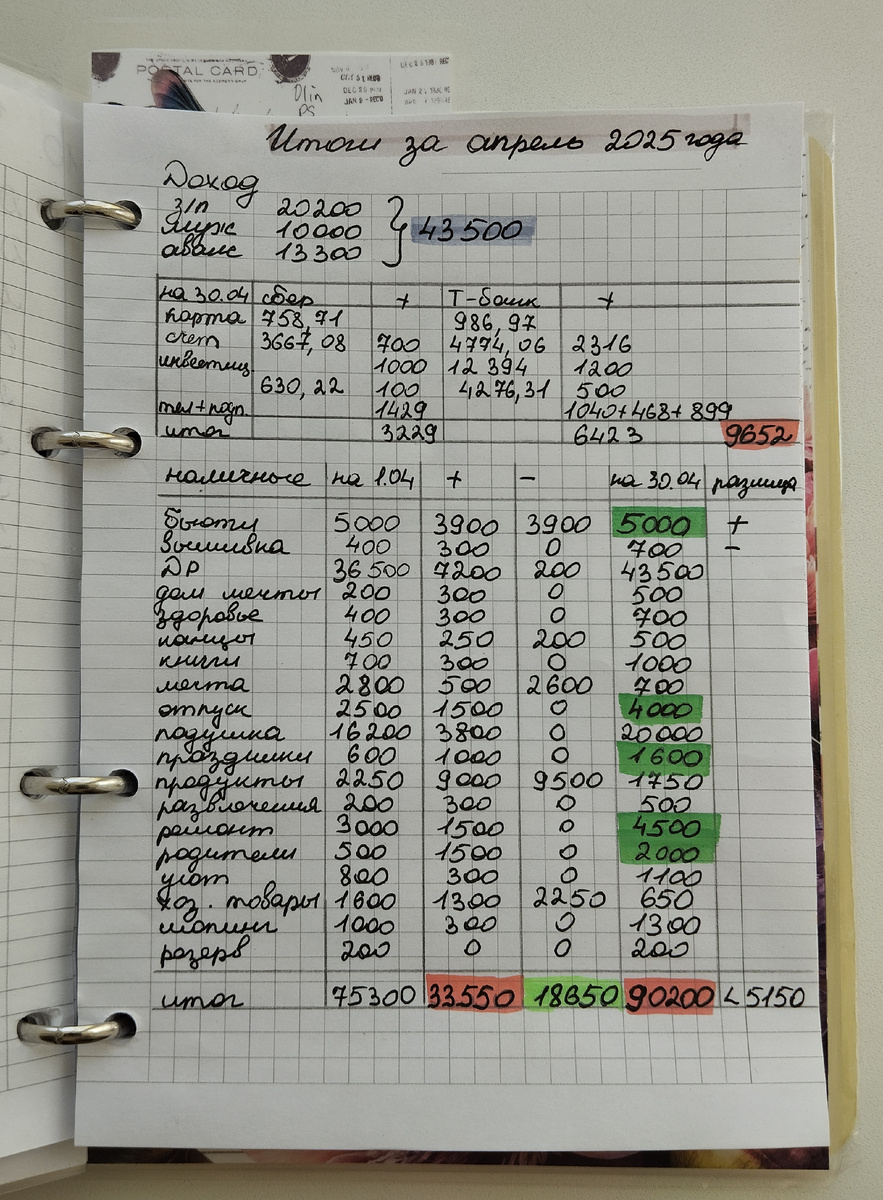 POSTAL CARD
Итоги за апрель 2025 года
Доход
з/п 20200
муж 10000 } 43500
аванс 13300
на 30.04 сбер + Т-банк +
карта 758,71 986,97
счет 3667,08 700 4774,06 2316
инвестиц. 1000 12 394 1200
630,22 100 4276,31 500
тел+подп. 1429 1040+468+899
итог 3229 6423 9652
наличные на 1.04 + - на 30.04 разница
бьюти 5000 3900 3900 5000 +
вышивка 400 300 0 700 -
ДР 36500 7200 200 43500
дом мечты 200 300 0 500
здоровье 400 300 0 700
канцы 450 250 200 500
книги 700 300 0 1000
мечта 2800 500 2600 700
отпуск 2500 1500 0 4000
подушка 16200 3800 0 20000
праздники 600 1000 0 1600
продукты 2250 9000 9500 1750
развлечения 200 300 0 500
ремонт 3000 1500 0 4500
родители 500 1500 0 2000
уют 800 300 0 1100
хоз. товары 1600 1300 2250 650
шопинг 1000 300 0 1300
резерв 200 0 0 200
итог 75300 33550 18650 90200 <5150